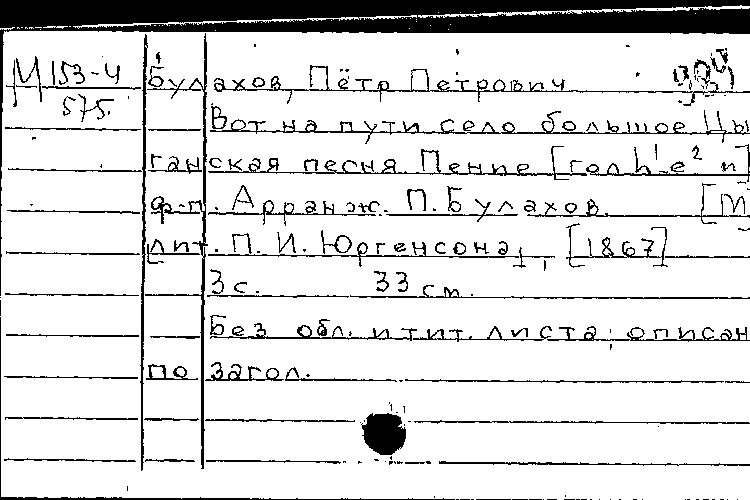 М 153-4
575.
984
Булахов, Пётр Петрович
Вот на пути село большое Цы
ганская песня Пение [голь-е² и]
ф-п. Арранж. П. Булахов. [М
лит. П. И. Юргенсона, [1867]
3 с. 33 см.
Без обл. и тит. листа; описан
по загол.